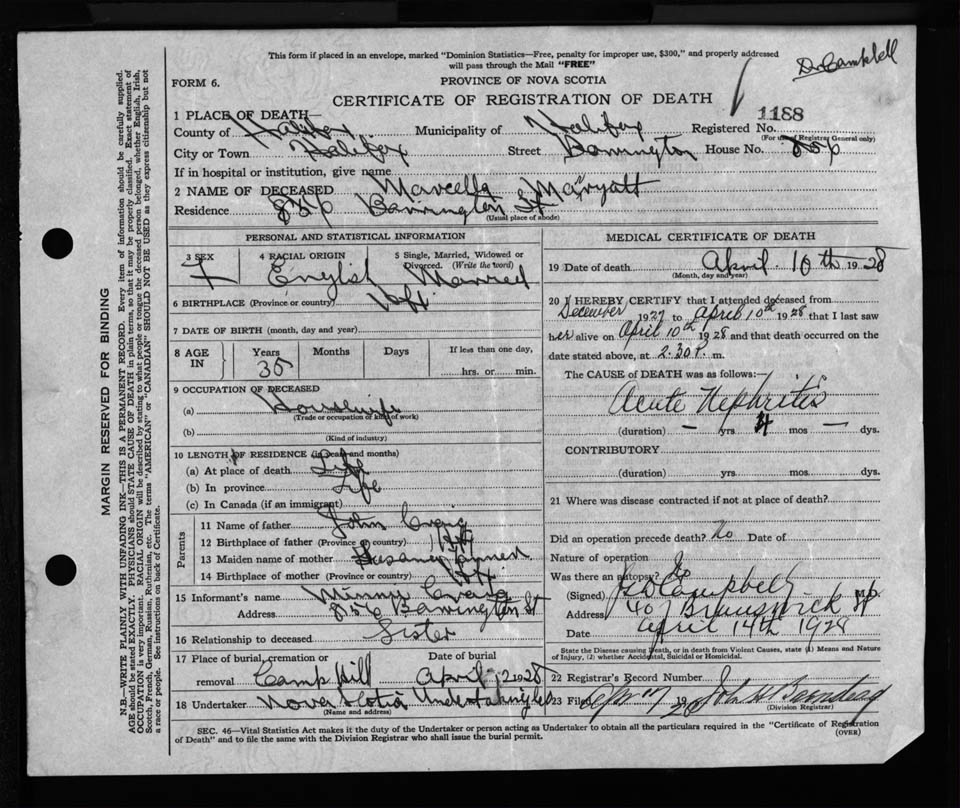 This form if placed in an envelope, marked "Dominion Statistics—Free, penalty for improper use, $300," and properly addressed
will pass through the Mail "FREE"
Dr Campbell
FORM 6.
PROVINCE OF NOVA SCOTIA
CERTIFICATE OF REGISTRATION OF DEATH
1188
1 PLACE OF DEATH—
County of Halifax Municipality of Halifax Registered No.
(For use of Registrar General only)
City or Town Halifax Street Barrington House No. 856
If in hospital or institution, give name
2 NAME OF DECEASED Marcella Maryatt
Residence 856 Barrington St
(Usual place of abode)
PERSONAL AND STATISTICAL INFORMATION
3 SEX F 4 RACIAL ORIGIN English 5 Single, Married, Widowed or Divorced. (Write the word) Married
6 BIRTHPLACE (Province or country) Hfx
7 DATE OF BIRTH (month, day and year)
8 AGE IN Years 35 Months Days If less than one day, hrs. or min.
9 OCCUPATION OF DECEASED
(a) Housewife
(Trade or occupation or kind of work)
(b)
(Kind of industry)
10 LENGTH OF RESIDENCE (in years and months)
(a) At place of death Life
(b) In province Life
(c) In Canada (if an immigrant)
Parents
11 Name of father John Craig
12 Birthplace of father (Province or country) Hfx
13 Maiden name of mother
14 Birthplace of mother (Province or country) Hfx
15 Informant's name Minnie Craig
Address 856 Barrington St
16 Relationship to deceased Sister
17 Place of burial, cremation or removal Camp Hill Date of burial April 1928
18 Undertaker Nova Scotia Undertaking Co
(Name and address)
MEDICAL CERTIFICATE OF DEATH
19 Date of death April 10th 1928
(Month, day and year)
20 I HEREBY CERTIFY that I attended deceased from
December 1927 to April 10th 1928 that I last saw
her alive on April 10th 1928 and that death occurred on the
date stated above, at 2.30 P. m.
The CAUSE of DEATH was as follows:—
Acute Nephritis
(duration) — yrs 4 mos — dys.
CONTRIBUTORY
(duration) yrs. mos. dys.
21 Where was disease contracted if not at place of death?
Did an operation precede death? No Date of
Nature of operation
Was there an autopsy? No
(Signed) Campbell M.D.
Address 407 Brunswick St
Date April 14th 1928
State the Disease causing Death, or in death from Violent Causes, state (1) Means and Nature of Injury, (2) whether Accidental, Suicidal or Homicidal.
22 Registrar's Record Number
23 Filed 1928 John
(Division Registrar)
SEC. 46—Vital Statistics Act makes it the duty of the Undertaker or person acting as Undertaker to obtain all the particulars required in the "Certificate of Registration
of Death" and to file the same with the Division Registrar who shall issue the burial permit.
(OVER)
MARGIN RESERVED FOR BINDING
N.B.—WRITE PLAINLY WITH UNFADING INK—THIS IS A PERMANENT RECORD. Every item of information should be carefully supplied.
AGE should be stated EXACTLY. PHYSICIANS should STATE CAUSE OF DEATH in plain terms, so that it may be properly classified. Exact statement of
OCCUPATION is very important. RACIAL ORIGIN will be described by stating to what people or tongue the deceased person belonged, whether English, Irish,
Scotch, French, German, Russian, Ruthenian, etc. The terms "AMERICAN" or "CANADIAN" SHOULD NOT BE USED as they express citizenship but not
a race or people. See instructions on back of Certificate.